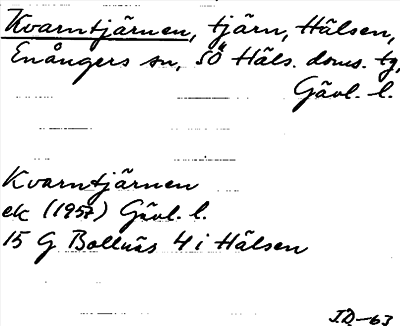 Kvarntjärnen, tjärn, Hälsen,
Enångers sn, SÖ Häls. doms. tg,
Gävl. l.
Kvarntjärnen
ek (1957) Gävl. l.
15 G Bollnäs 4 i Hälsen
ID-63